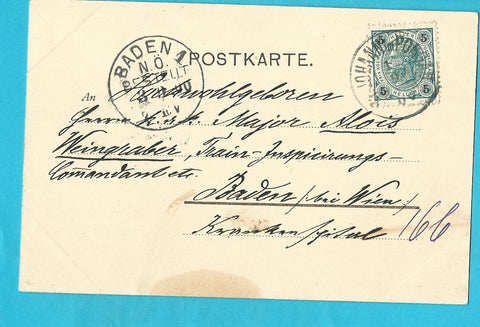 POSTKARTE.
BADEN 1
N.Ö.
BESTELLT
5
5
An
Herrn k.u.k. Major Alois
Weingraber, Train-Inspicirungs-
Comandant etc.
Baden (bei Wien)
Krankenspital
166